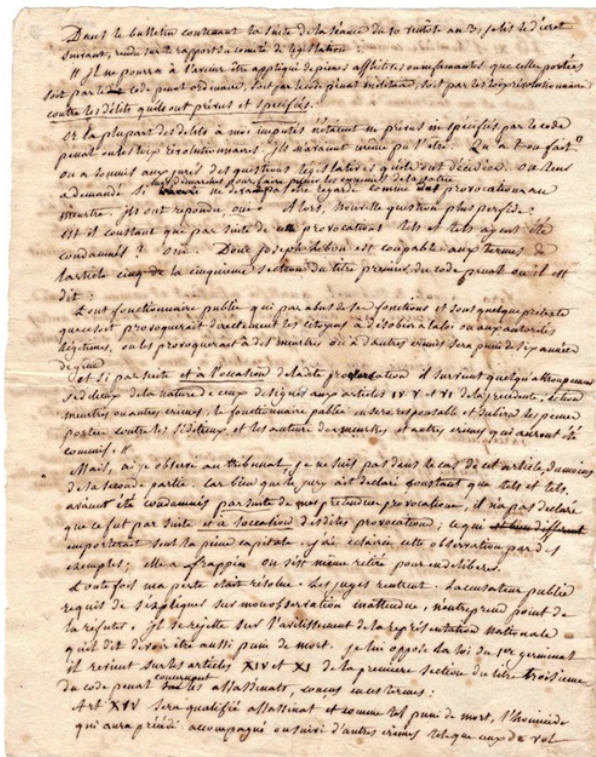 Dans le bulletin contenant la suite de la séance du 10 ventôse an 3, je lis le décret
suivant, rendu sur le rapport du comité de législation :
"Il ne pourra à l'avenir être appliqué de peines afflictives ou infamantes que celles portées
soit par le code penal ordinaire, soit par le code penal militaire, soit par les loix révolutionnaires
contre les délits qu'ils ont prévus et spécifiés.
Or la plupart des delits à moi imputés n'étaient ni prévus ni spécifiés par le code
penal ou les loix révolutionnaires. Ils n'avaient même pu l'être. Qu'a-t-on fait"
on a soumis aux jurés des questions législatives qu'ils ont décidées. On leur
a demandé si, ne devrait pas être regardé comme une provocation au
mes démarches pour faire punir les ennemis de la patrie
meurtre. Ils ont répondu, oui. Alors, nouvelle question plus perfide :
est il constant que par suite de cette provocations tels et tels ayent été
condamnés ? oui. Donc Joseph Lebon est coupable aux termes de
l'article cinq de la cinquieme section du titre premier du code penal où il est
dit :
Tout fonctionnaire public qui par abus de ses fonctions et sous quelque pretexte
que ce soit provoquerait directement les citoyens à désobéir à la loi ou aux autorités
légitimes, ou les provoquerait à des meurtres ou à d'autres crimes sera puni de six années
de gêne
et si par suite et à l'occasion de ladite provocation il survient quelqu'attroupement
séditieux de la nature de ceux designés aux articles IV V et VI de la précedente section
meurtres ou autres crimes, le fonctionnaire public en sera responsable et subira les peines
portées contre les séditieux et les auteurs des meurtres et autres crimes qui auront été
commis."
Mais, ai-je observé au tribunal, je ne suis pas dans le cas de cet article, du moins
de la seconde partie. Car bien que le jury ait declaré constant que tels et tels
avaient été condamnés par suite de mes prétendues provocations, il n'a pas declaré
que ce fut par suite et à l'occasion desdites provocations ; ce qui est bien différent
emporterait seul la peine capitale. J'ai éclairci cette observation par des
exemples ; elle a frappé on s'est même retiré pour en délibérer.
Toute fois ma perte était résolue. Les juges rentrent. L'accusateur public
requis de s'expliquer sur mon observation inattendue, n'entreprend point de
la réfuter. Il se rejette sur l'avilissement de la représentation nationale
qu'il dit devoir être aussi puni de mort. Je lui oppose la loi du 1er germinal
il revient sur les articles XIV et XI de la premiere section du titre troisieme
du code penal concernant les assassinats, conçus en ces termes :
Art XIV sera qualifié assassinat et comme tel puni de mort, l'homicide
qui aura précédé accompagné ou suivi d'autres crimes tels que ceux de vol